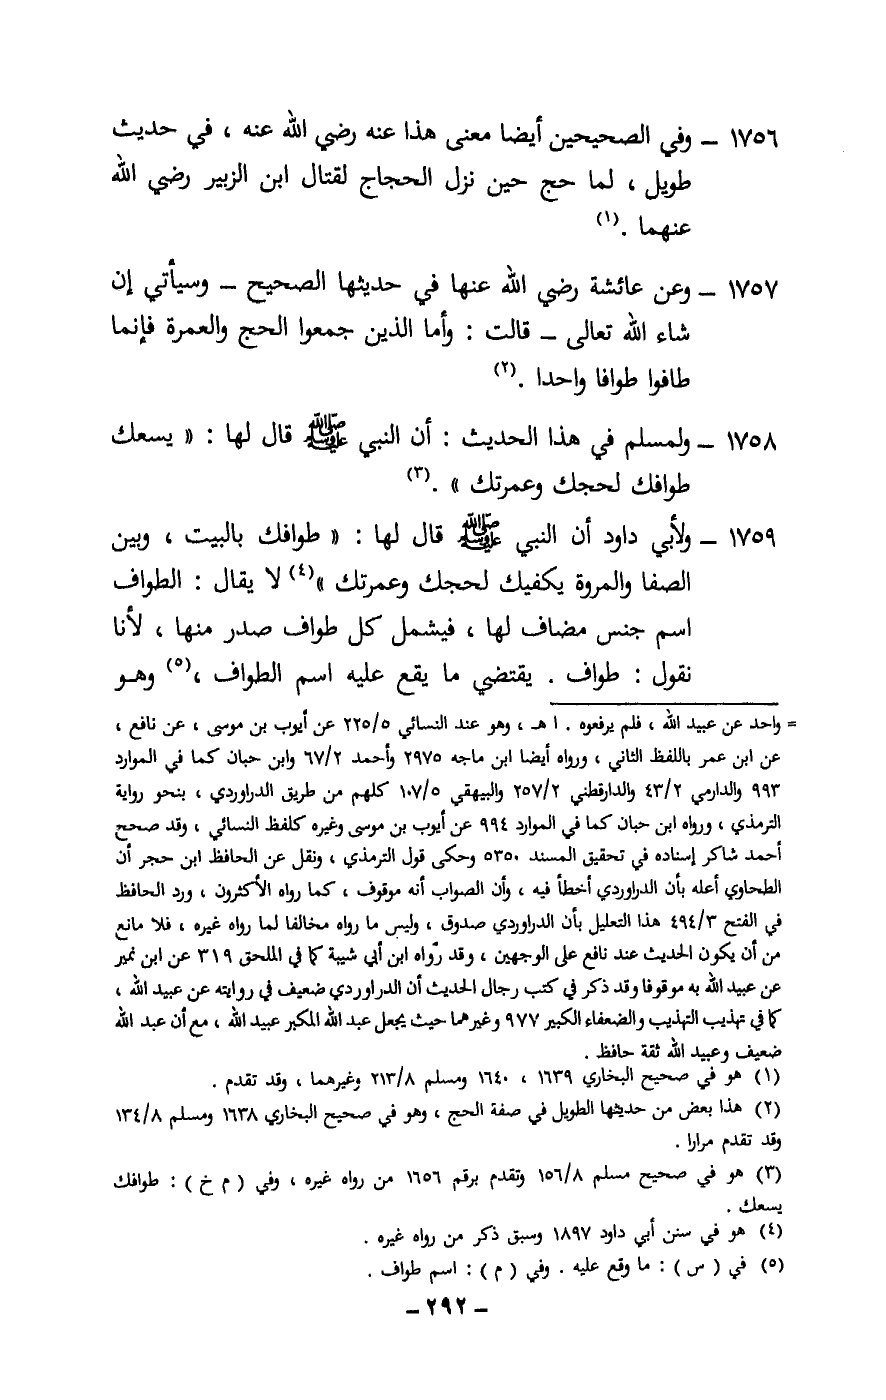 ١٧٥٦ – وفي الصحيحين أيضا معنى هذا عنه رضي الله عنه ، في حديث
طويل ، لما حج حين نزل الحجاج لقتال ابن الزبير رضي الله
عنهما .(١)
١٧٥٧ – وعن عائشة رضي الله عنها في حديثها الصحيح – وسيأتي إن
شاء الله تعالى – قالت : وأما الذين جمعوا الحج والعمرة فإنما
طافوا طوافا واحدا .(٢)
١٧٥٨ – ولمسلم في هذا الحديث : أن النبي ﷺ قال لها : « يسعك
طوافك لحجك وعمرتك » .(٣)
١٧٥٩ – ولأبي داود أن النبي ﷺ قال لها : « طوافك بالبيت ، وبين
الصفا والمروة يكفيك لحجك وعمرتك »(٤) لا يقال : الطواف
اسم جنس مضاف لها ، فيشمل كل طواف صدر منها ، لأنا
نقول : طواف . يقتضي ما يقع عليه اسم الطواف ،(٥) وهـو
= واحد عن عبيد الله ، فلم يرفعوه . ا هـ ، وهو عند النسائي ٢٢٥/٥ عن أيوب بن موسى ، عن نافع ،
عن ابن عمر باللفظ الثاني ، ورواه أيضا ابن ماجه ٢٩٧٥ وأحمد ٦٧/٢ وابن حبان كما في الموارد
٩٩٣ والدارمي ٤٣/٢ والدارقطني ٢٥٧/٢ والبيهقي ١٠٧/٥ كلهم من طريق الدراوردي ، بنحو رواية
الترمذي ، ورواه ابن حبان كما في الموارد ٩٩٤ عن أيوب بن موسى وغيره كلفظ النسائي ، وقد صحح
أحمد شاكر إسناده في تحقيق المسند ٥٣٥٠ وحكى قول الترمذي ، ونقل عن الحافظ ابن حجر أن
الطحاوي أعله بأن الدراوردي أخطأ فيه ، وأن الصواب أنه موقوف ، كما رواه الأكثرون ، ورد الحافظ
في الفتح ٤٩٤/٣ هذا التعليل بأن الدراوردي صدوق ، وليس ما رواه مخالفا لما رواه غيره ، فلا مانع
من أن يكون الحديث عند نافع على الوجهين ، وقد رواه ابن أبي شيبة كما في الملحق ٣١٩ عن ابن نمير
عن عبيد الله به موقوفا وقد ذكر في كتب رجال الحديث أن الدراوردي ضعيف في روايته عن عبيد الله ،
كما في تهذيب التهذيب والضعفاء الكبير ٩٧٧ وغيرهما حيث يجعل عبد الله المكبر عبيد الله ، مع أن عبد الله
ضعيف وعبيد الله ثقة حافظ .
(١) هو في صحيح البخاري ١٦٣٩ ، ١٦٤٠ ومسلم ٢١٣/٨ وغيرهما ، وقد تقدم .
(٢) هذا بعض من حديثها الطويل في صفة الحج ، وهو في صحيح البخاري ١٦٣٨ ومسلم ١٣٤/٨
وقد تقدم مرارا .
(٣) هو في صحيح مسلم ١٥٦/٨ وتقدم برقم ١٦٥٦ من رواه غيره ، وفي ( م خ ) : طوافك
يسعك .
(٤) هو في سنن أبي داود ١٨٩٧ وسبق ذكر من رواه غيره .
(٥) في ( س ) : ما وقع عليه . وفي ( م ) : اسم طواف .
– ٢٩٢ –